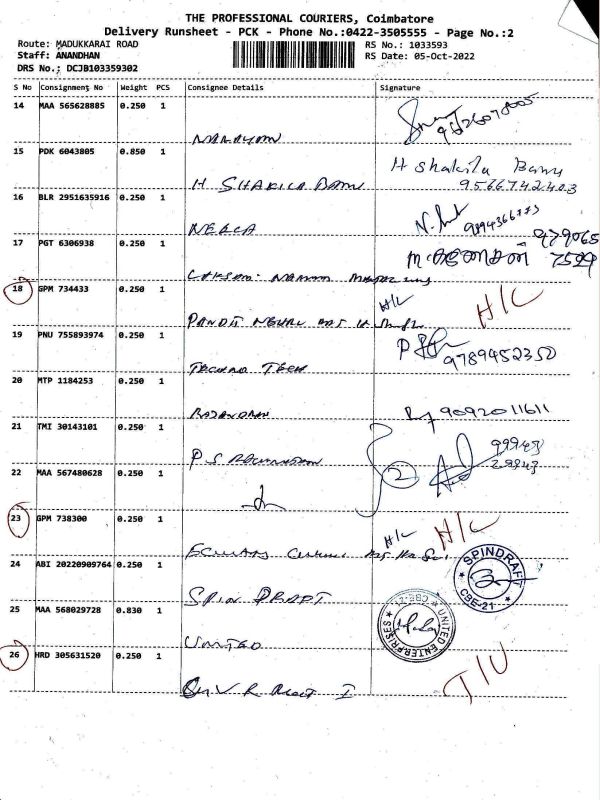 THE PROFESSIONAL COURIERS, Coimbatore
Delivery Runsheet - PCK - Phone No.:0422-3505555 - Page No.:2
Route: MADUKKARAI ROAD
RS No.: 1033593
Staff: ANANDHAN
RS Date: 05-Oct-2022
DRS No.: DCJB103359302
S No Consignment No Weight PCS Consignee Details Signature
14 MAA 565628885 0.250 1
NARAYAN
15 PDK 6043805 0.850 1
H Shakila Banu
9566742403
H. SHAKILA BANU
16 BLR 2951635916 0.250 1
9894366773
17 PGT 6306938 0.250 1
979065
7599
18 GPM 734433 0.250 1
H/C
H/C
PANDIT
19 PNU 755893974 0.250 1
9789452350
TECHNO TECH
20 MTP 1184253 0.250 1
9092011611
21 TMI 30143101 0.250 1
99943
29943
P S
2
22 MAA 567480628 0.250 1
23 GPM 738300 0.250 1
H/C
H/C
24 ABI 20220909764 0.250 1
SPINDRAFT
CBE-21
SPIN DRAFT
25 MAA 568029728 0.830 1
UNITED ENTERPRISES
CBE-21
UNITED
26 HRD 305631520 0.250 1